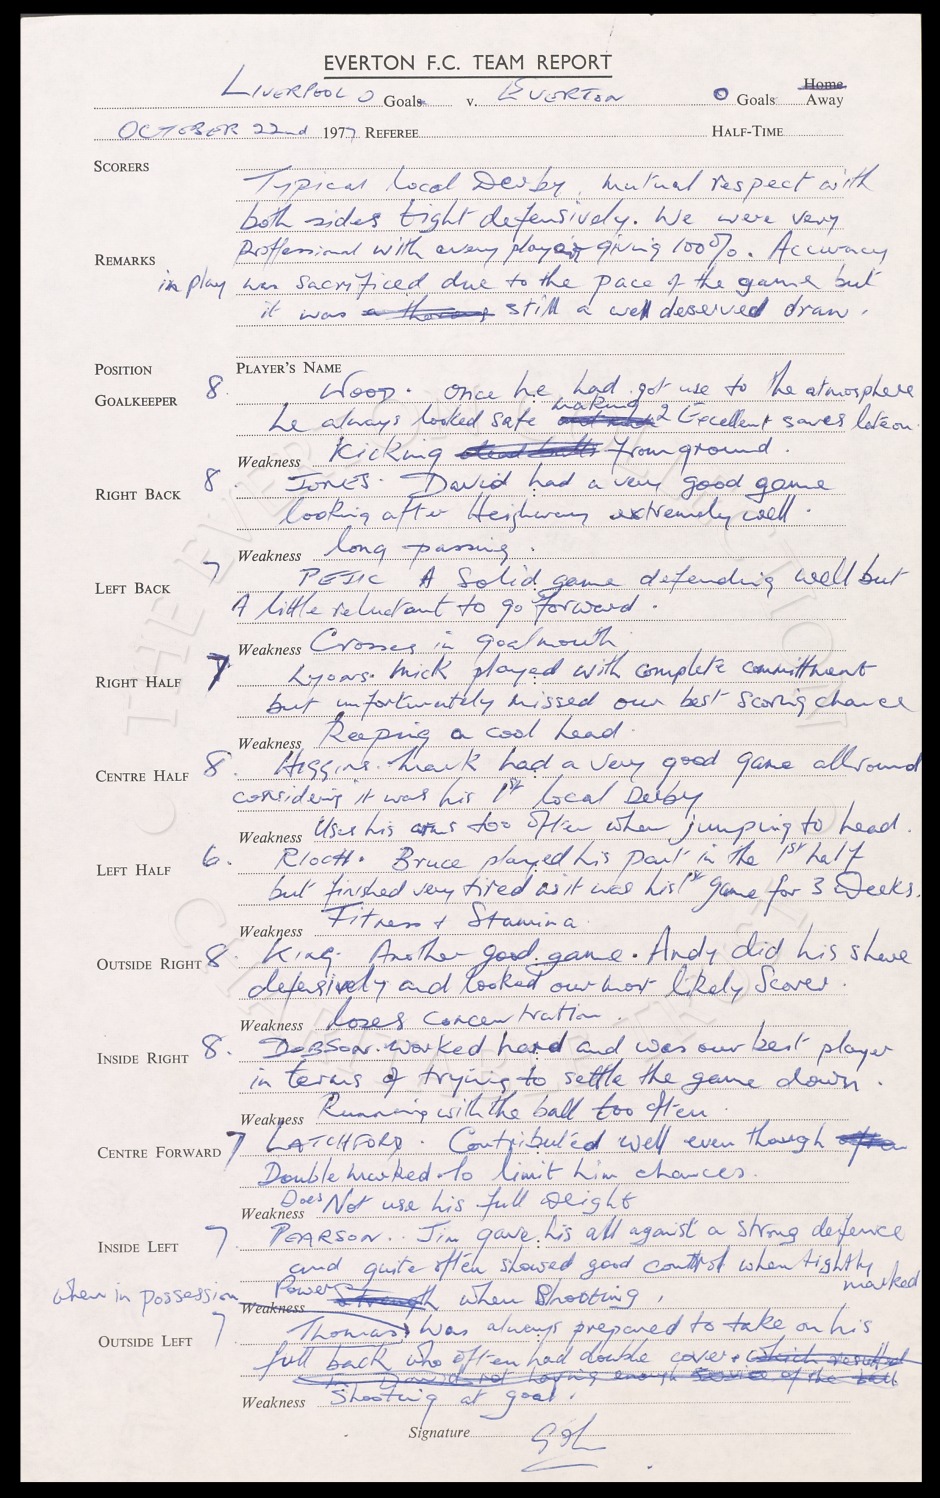 EVERTON F.C. TEAM REPORT
LIVERPOOL 0 Goals v. EVERTON 0 Goals Home Away
OCTOBER 22nd 1977 REFEREE HALF-TIME
SCORERS
Typical local Derby, mutual respect with
both sides tight defensively. We were very
Proffessional with every player giving 100%. Accuracy
REMARKS
in play was sacrificed due to the pace of the game but
it was still a well deserved draw.
POSITION PLAYER'S NAME
GOALKEEPER 8. WOOD. Once he had got use to the atmosphere
he always looked safe making 2 Excellent saves late on.
Weakness Kicking dead balls from ground.
RIGHT BACK 8. JONES. David had a very good game
looking after Heighway extremely well.
Weakness long passing.
LEFT BACK 7 PEJIC A solid game defending well but
A little reluctant to go forward.
Weakness Crosses in goalmouth
RIGHT HALF 7 Lyons. Mick played with complete committment
but unfortunately missed our best scoring chance
Weakness Keeping a cool head.
CENTRE HALF 8. HIGGINS. Mark had a very good game allround
considering it was his 1st local Derby
Weakness Uses his arms too often when jumping to head.
LEFT HALF 6. RIOCH. Bruce played his part in the 1st half
but finished very tired as it was his 1st game for 3 weeks.
Weakness Fitness + Stamina.
OUTSIDE RIGHT 8. KING. Another good game. Andy did his share
defensively and looked our most likely Scorer.
Weakness loses concentration.
INSIDE RIGHT 8. DOBSON. worked hard and was our best player
in terms of trying to settle the game down.
Weakness Running with the ball too often.
CENTRE FORWARD 7 LATCHFORD. Contributed well even though often
Double marked to limit him chances.
Weakness Does Not use his full weight
INSIDE LEFT 7. PEARSON. Jim gave his all against a strong defence
and quite often showed good control when tightly marked
when in possession
Weakness Power strength when Shooting.
OUTSIDE LEFT 7 Thomas! Was always prepared to take on his
full back who often had double cover. which resulted
in Dave not having enough service of the ball
Weakness Shooting at goal.
Signature